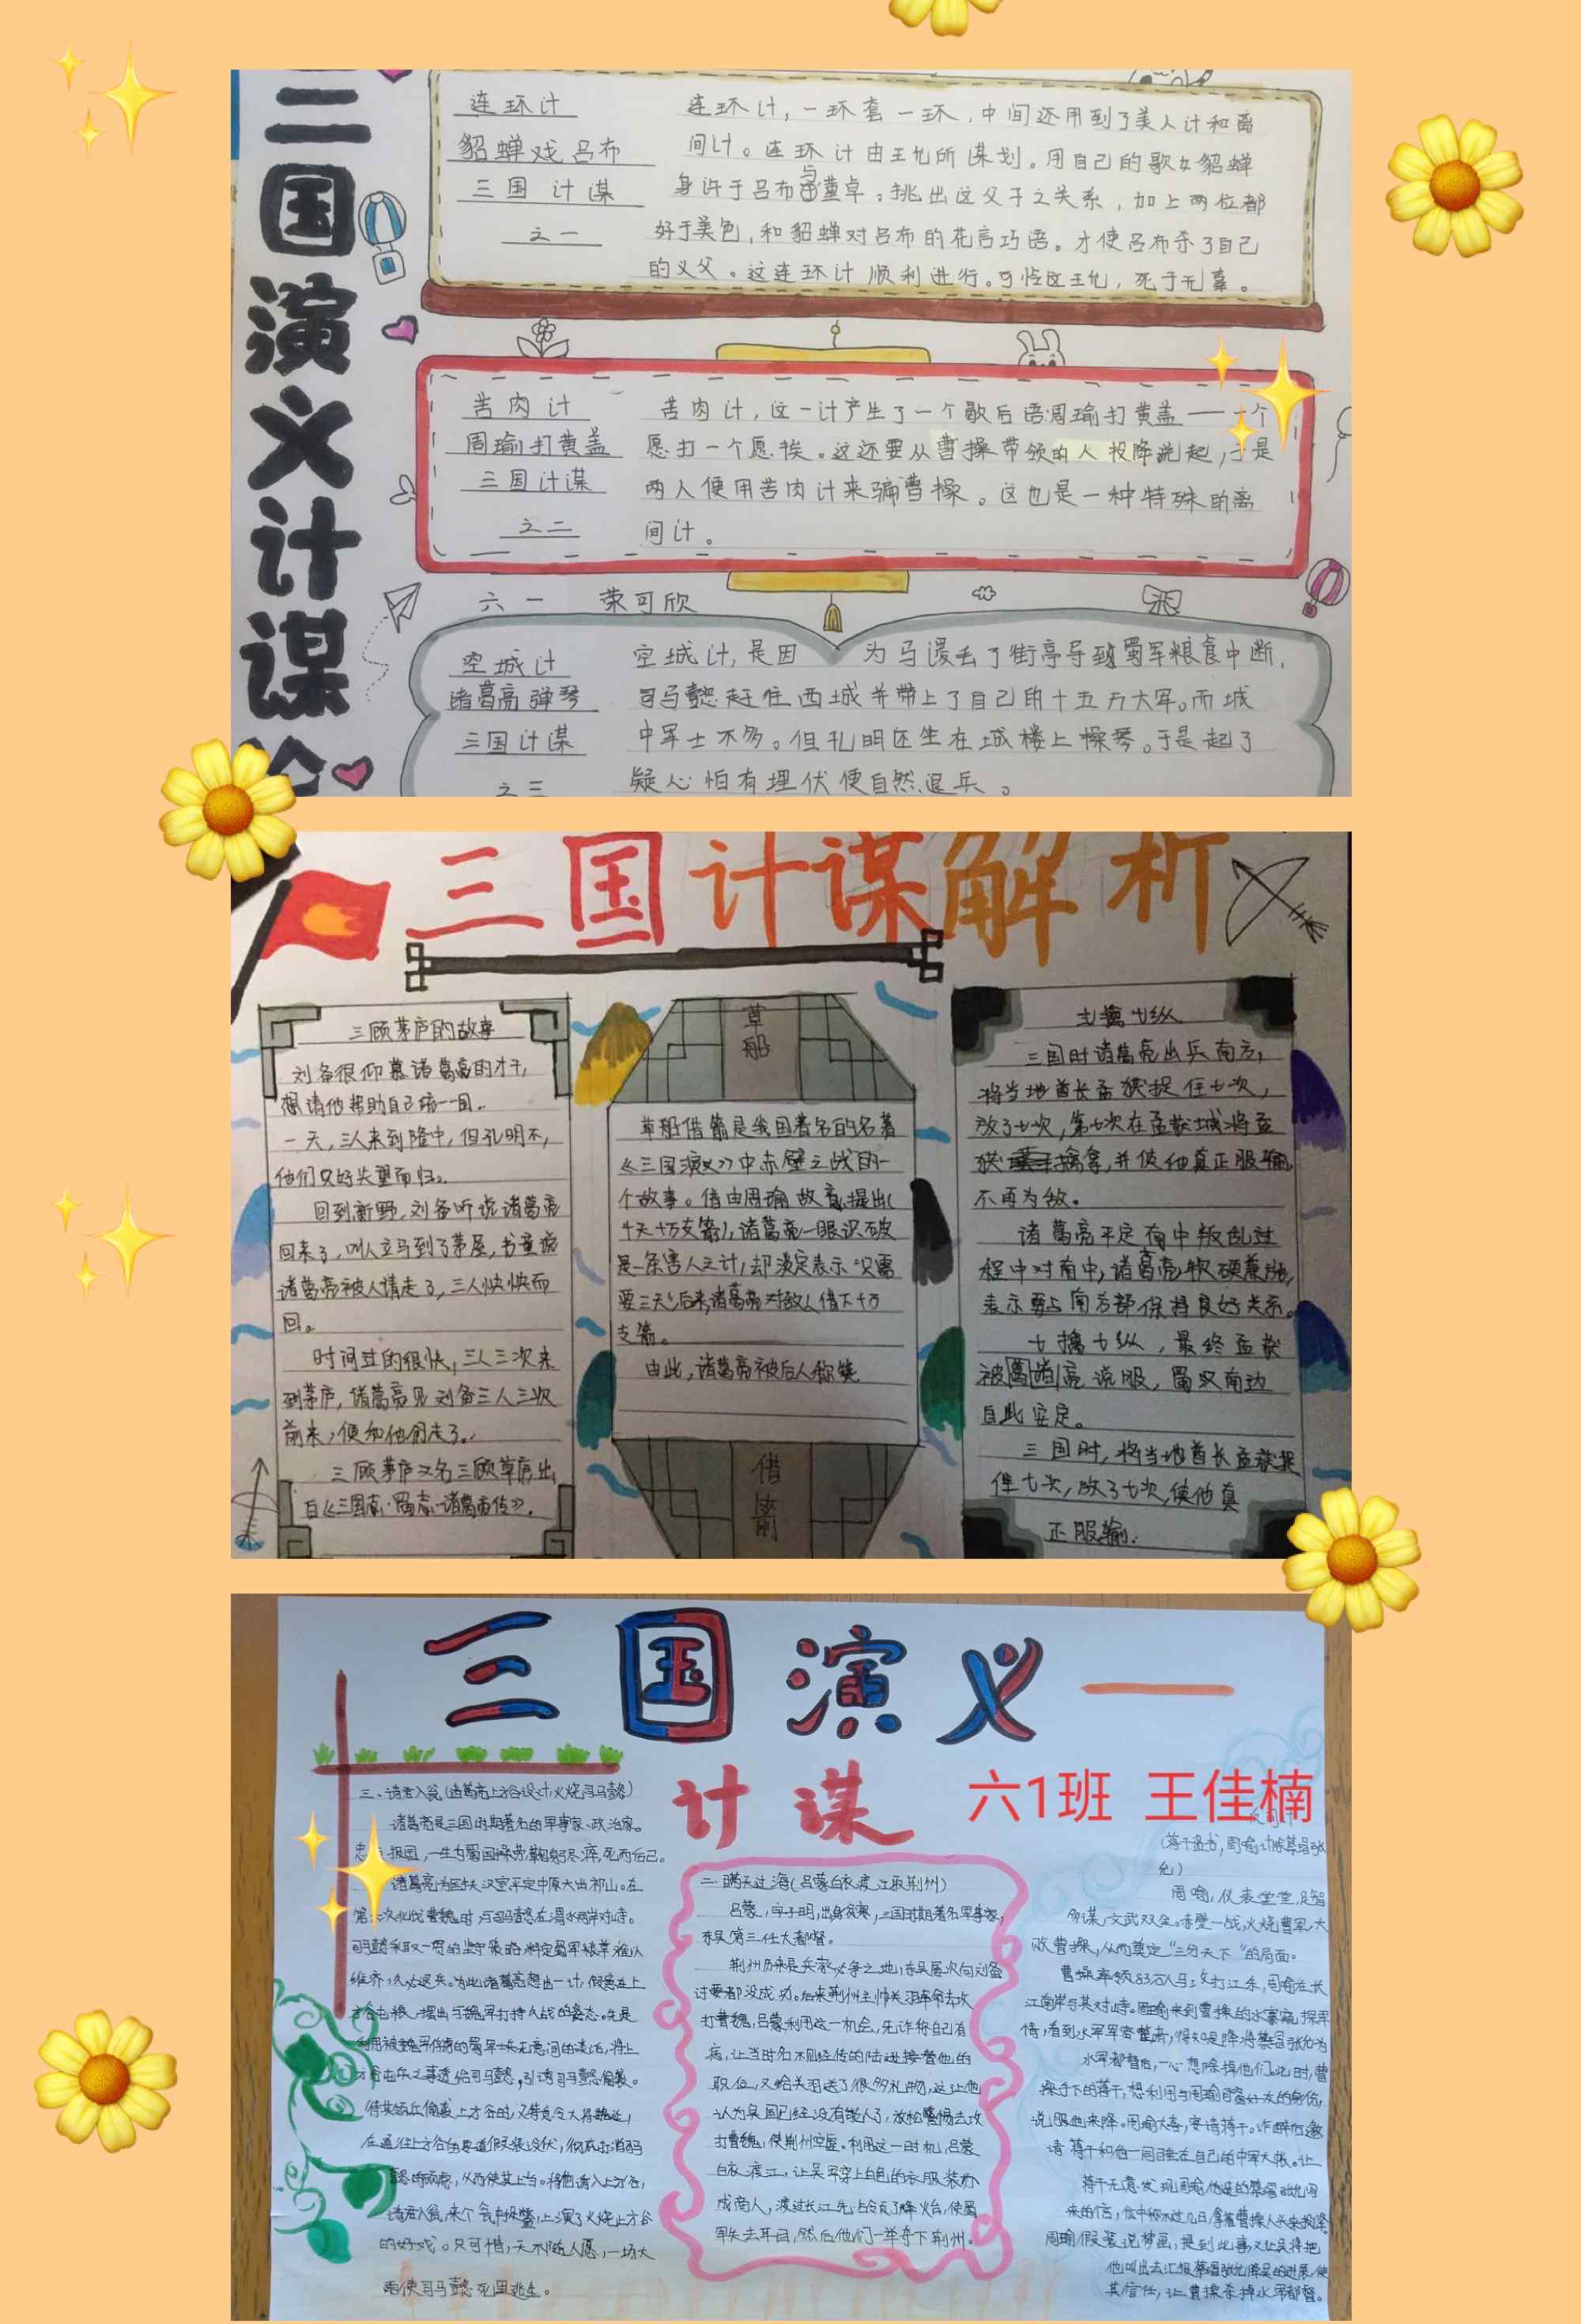 三国演义计谋论
连环计
貂蝉戏吕布
三国计谋
之一
连环计，一环套一环，中间还用到了美人计和离
间计。连环计由王允所谋划。用自己的歌女貂蝉
身许于吕布与董卓。挑出这父子之关系，加上两位都
好于美色，和貂蝉对吕布的花言巧语。才使吕布杀了自己
的义父。这连环计顺利进行。可怜这王允，死于无辜。
苦肉计
周瑜打黄盖
三国计谋
之二
苦肉计，这一计产生了一个歇后语:周瑜打黄盖——一个
愿打一个愿挨。这还要从曹操带领的人投降说起，于是
两人便用苦肉计来骗曹操。这也是一种特殊的离
间计。
六一 荣可欣
空城计
诸葛亮弹琴
三国计谋
之三
空城计，是因为马谡丢了街亭导致蜀军粮食中断，
司马懿赶往西城并带上了自己的十五万大军。而城
中军士不多。但孔明还坐在城楼上操琴。于是起了
疑心怕有埋伏便自然退兵。
三国计谋解析
三顾茅庐的故事
刘备很仰慕诸葛亮的才干，
想请他帮助自己统一国。
一天，三人来到隆中，但孔明不，
他们只好失望而归。
回到新野，刘备听说诸葛亮
回来了，叫人立马到了茅屋，书童说
诸葛亮被人请走了，三人怏怏而
回。
时间过的很快，三人三次来
到茅庐，诸葛亮见刘备三人三次
前来，便和他们走了。
三顾茅庐又名三顾草庐出
自《三国志·蜀志·诸葛亮传》。
草船
草船借箭是我国著名的名著
《三国演义》中赤壁之战的一
个故事。借由周瑜故意提出（
十天十万支箭），诸葛亮一眼识破
是一条害人之计，却淡定表示“只需
要三天”后来，诸葛亮对敌人借下十万
支箭。
由此，诸葛亮被后人称赞
借箭
七擒七纵
三国时诸葛亮出兵南方，
将当地酋长孟获捉住七次，
放了七次，第七次在孟获城将孟
获擒拿，并使他真正服输，
不再为敌。
诸葛亮平定南中叛乱过
程中对南中，诸葛亮软硬兼施，
表示要与南方部保持良好关系。
七擒七纵，最终孟获
被诸葛亮说服，蜀汉南边
自此安定。
三国时，将当地酋长孟获捉
住七次，放了七次，使他真
正服输.
三国演义——
计谋
六1班 王佳楠
三、请君入瓮（诸葛亮上方谷设计火烧司马懿）
诸葛亮是三国时期著名的军事家、政治家。
报国，一生为蜀国操劳，鞠躬尽瘁，死而后已。
诸葛亮为匡扶汉室平定中原六出祁山。在
第六次北伐曹魏时，与司马懿在渭水两岸对峙。
司马懿采取一贯的坚守策略，料定蜀军粮草难以
维济，久必退兵。为此诸葛亮想出一计，假意在上
方谷屯粮，摆出与魏军打持久战的姿态。先是
利用被魏军俘虏的蜀军士兵无意间的谈话，将上
方谷屯兵之事透给司马懿，引诱司马懿偷袭。
待其领兵偷袭上方谷时，又特意令大将魏延，
在通往上方谷的要道假装设伏，彻底打消司马
懿的顾虑，从而使其上当。将他诱入上方谷，
请君入瓮，来个瓮中捉鳖，上演了火烧上方谷
的好戏。只可惜，天不随人愿，一场大
雨使司马懿死里逃生。
二、瞒天过海（吕蒙白衣渡江取荆州）
吕蒙，字子明，出身贫寒，三国时期著名军事家，
东吴第三任大都督。
荆州历来是兵家必争之地，东吴屡次向刘备
讨要都没成功。后来荆州主帅关羽奉命去攻
打曹魏，吕蒙利用这一机会，先诈称自己有
病，让当时名不见经传的陆逊接替他的
职位，又给关羽送了很多礼物，这让他
认为吴国已经没有能人了，放松警惕去攻
打曹魏，使荆州空虚。利用这一时机，吕蒙
白衣渡江，让吴军穿上白色的衣服装扮
成商人，渡过长江先占领了烽火台，使蜀
军失去耳目，然后他们一举夺下荆州。
反间计
（蒋干盗书，周瑜计除蔡瑁张
允）
周瑜，仪表堂堂，足智
多谋，文武双全。赤壁一战，火烧曹军，大
败曹操，从而奠定“三分天下”的局面。
曹操率领83万人马，攻打江东，周瑜在长
江南岸与其对峙。周瑜来到曹操的水寨窥探军
情，看到水军军容整齐，得知是降将蔡瑁张允为
水军都督后，一心想除掉他们。此时，曹
操手下的蒋干，想利用与周瑜同窗好友的身份，
说服他来降。周瑜大喜，宴请蒋干。诈醉后邀
请蒋干和他一同睡在自己的中军大帐。让
蒋干无意发现周瑜伪造的蔡瑁张允写
来的信，信中称不过几日，拿着曹操人头来投降。
周瑜假装说梦话，提到此事，又让吴将把
他叫出去汇报蔡瑁张允降吴的进展，使
其信任，让曹操杀掉水军都督。